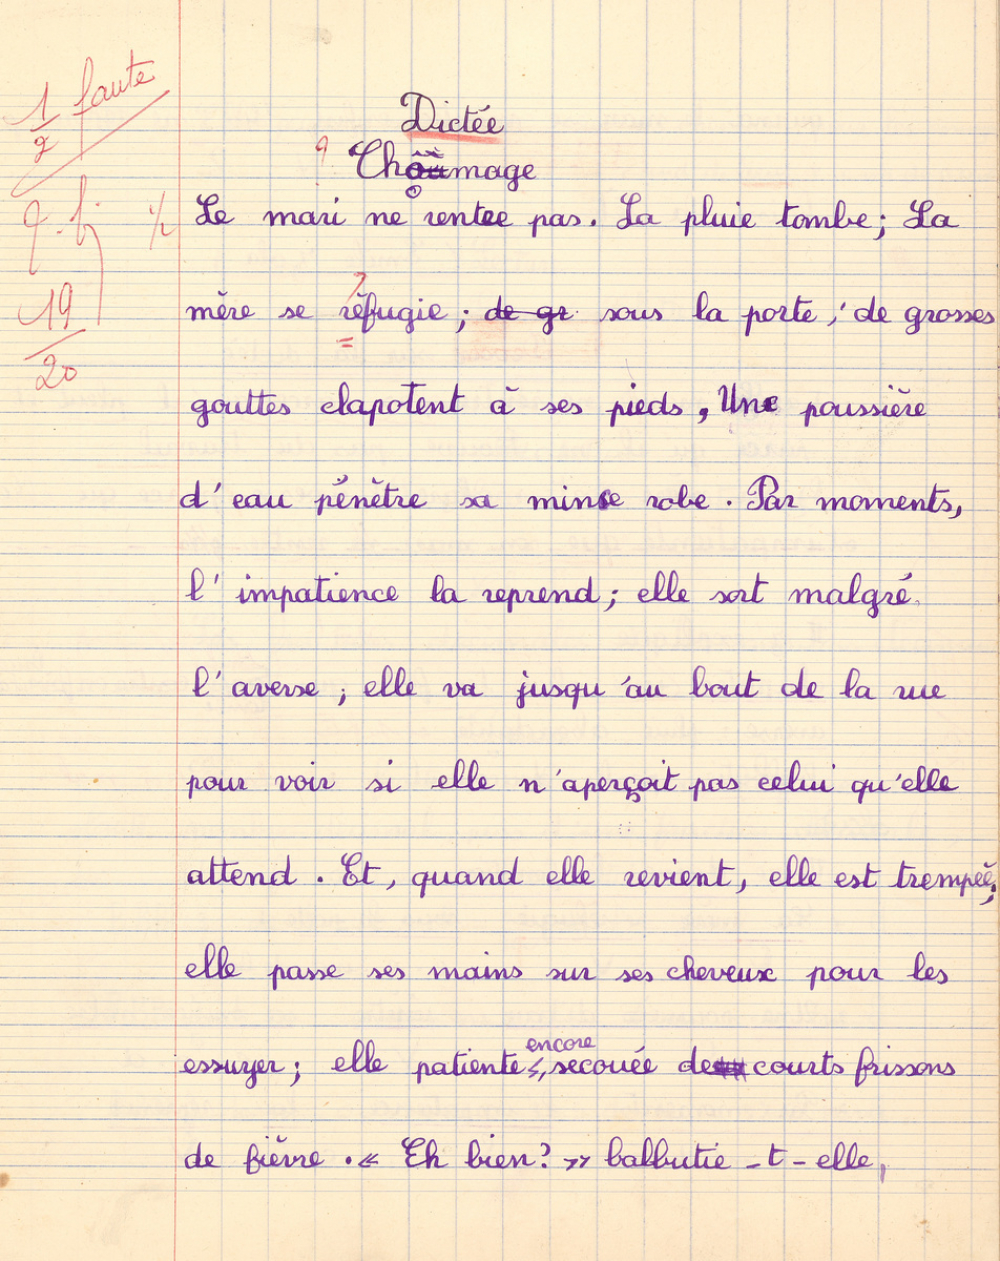 1/2 faute
Dictée
Chômage
19/20
Le mari ne rentre pas. La pluie tombe; La
mère se réfugie; de gr sous la porte, de grosses
gouttes clapotent à ses pieds, Une poussière
d'eau pénètre sa mince robe. Par moments,
l'impatience la reprend; elle sort malgré
l'averse; elle va jusqu'au bout de la rue
pour voir si elle n'aperçoit pas celui qu'elle
attend. Et, quand elle revient, elle est trempée,
elle passe ses mains sur ses cheveux pour les
encore
essuyer; elle patiente, secouée de courts frissons
de fièvre. « Eh bien? » balbutie-t-elle,